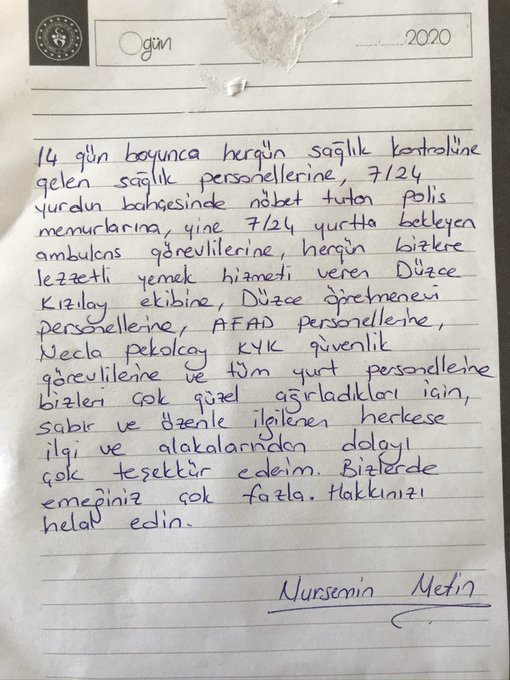 Ogün
2020
14 gün boyunca hergün sağlık kontrolüne
gelen sağlık personellerine, 7/24
yurdun bahçesinde nöbet tutan polis
memurlarına, yine 7/24 yurtta bekleyen
ambulans görevlilerine, hergün bizlere
lezzetli yemek hizmeti veren Düzce
Kızılay ekibine, Düzce öğretmenevi
personellerine, AFAD personellerine,
Necla pekolcay KYK güvenlik
görevlilerine ve tüm yurt personelleine
bizleri çok güzel ağırladıkları için,
sabır ve özenle ilgilenen herkese
ilgi ve alakalarından dolayı
çok teşekkür edeim. Bizlerde
emeğiniz çok fazla. Hakkınızı
helal edin.
Nursemin Metin